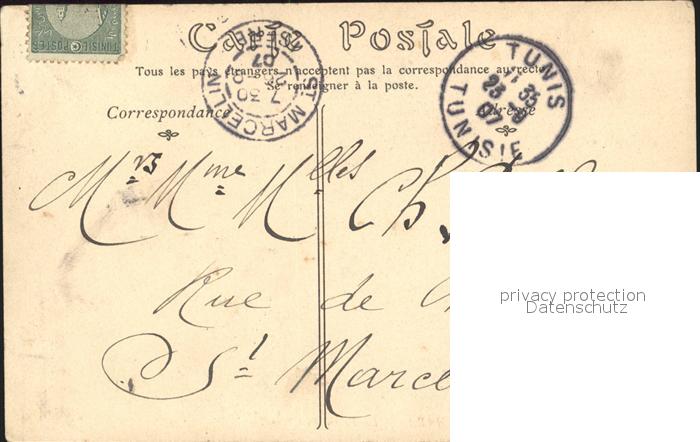 TUNISIE
POSTES
Carte Postale
Tous les pays étrangers n'acceptent pas la correspondance au recto
Se renseigner à la poste.
Correspondance
Adresse
ST MARCELLIN
7 30
07
TUNIS
23
07
TUNISIE
Mrs Mme Mlles Ch.
Rue de
St Marce
privacy protection
Datenschutz